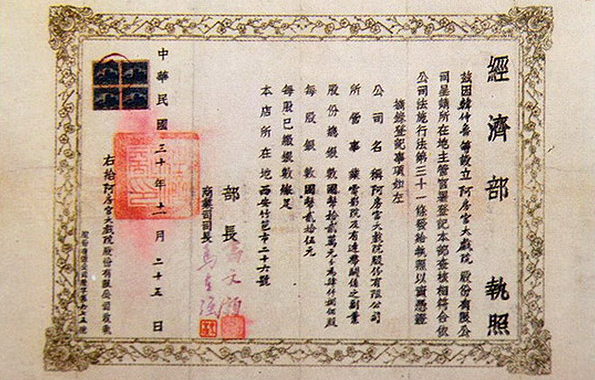 經濟部 執照
茲因韓仲魯等設立阿房宮大戲院股份有限公
司呈請所在地主管官署登記本部查核相符合依
公司法施行法第三十一條發給執照以資憑證
摘錄登記事項如左
公司名稱 阿房宮大戲院股份有限公司
所營事業 電影院及有連帶關係之副業
股份總銀數 國幣拾貳萬元分為肆仟捌佰股
每股銀數 國幣貳拾伍元
每股已繳銀數 繳足
本店所在地 西安竹笆市二十六號
部長
商業司司長
中華民國三十年十一月二十五日
右給阿房宮大戲院股份有限公司收執